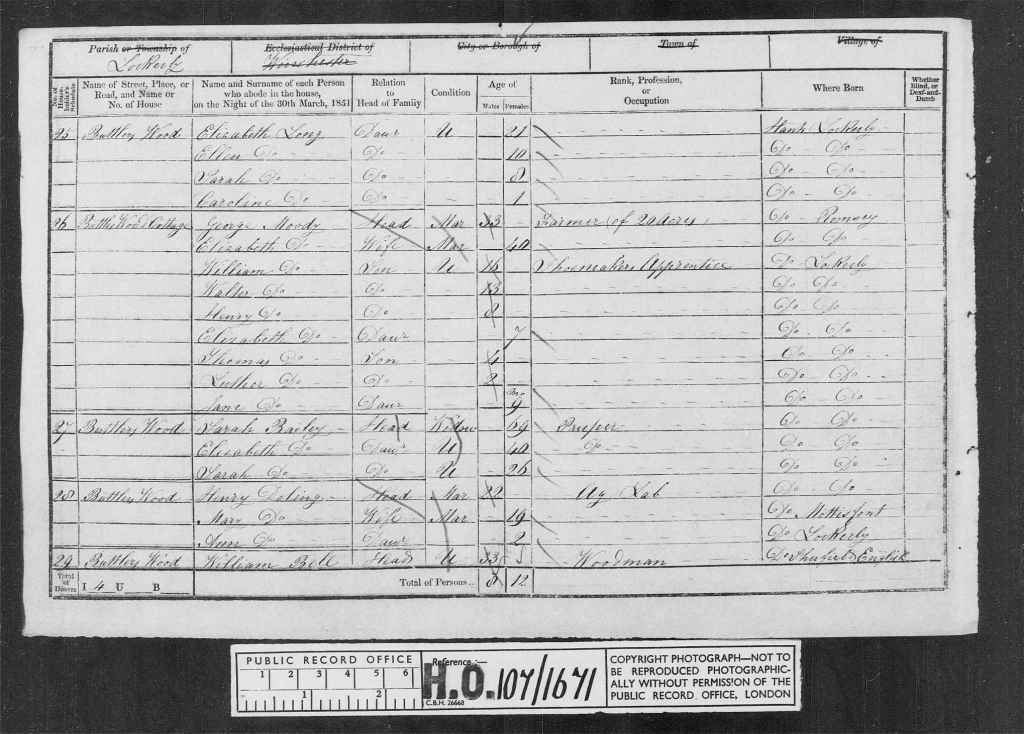 Parish or Township of Ecclesiastical District of City or Borough of Town of Village of
Lockerly Winchester
No. of Householder's Schedule Name of Street, Place, or Road, and Name or No. of House Name and Surname of each Person who abode in the house, on the Night of the 30th March, 1851 Relation to Head of Family Condition Age of Males Females Rank, Profession, or Occupation Where Born Whether Blind, or Deaf-and-Dumb
25 Buttlers Wood Elizabeth Long Daur U 21 Hants Lockerly
Ellen Do Do 10 Do Do
Sarah Do Do 8 Do Do
Caroline Do Do 1 Do Do
26 Buttlers Wood Cottage George Moody Head Mar 33 Farmer (of 20 Acres) Do Romsey
Elizabeth Do Wife Mar 40 Do Do
William Do Son U 16 Shoemakers Apprentice Do Lockerly
Walter Do Do 13 Do Do
Henry Do Do 8 Do Do
Elizabeth Do Daur 7 Do Do
Thomas Do Son 4 Do Do
Luther Do Do 2 Do Do
Jane Do Daur 9 Do Do
27 Buttlers Wood Sarah Bailey Head Widow 69 Pauper Do Do
Elizabeth Do Daur U 40 Do Do Do
Sarah Do Do U 26 Do Do
28 Buttlers Wood Henry Doling Head Mar 22 Ag Lab Do Do
Mary Do Wife Mar 19 Do Mottisfont
Ann Do Daur 2 Do Lockerly
29 Buttlers Wood William Bell Head U 33 Woodman Do English
Total of Houses I 4 U B Total of Persons .. 8 12
PUBLIC RECORD OFFICE
1 2 3 4 5 6
1 2
Reference:—
H.O. 107/1671
C.B.H. 26668
COPYRIGHT PHOTOGRAPH—NOT TO
BE REPRODUCED PHOTOGRAPHIC-
ALLY WITHOUT PERMISSION OF THE
PUBLIC RECORD OFFICE, LONDON